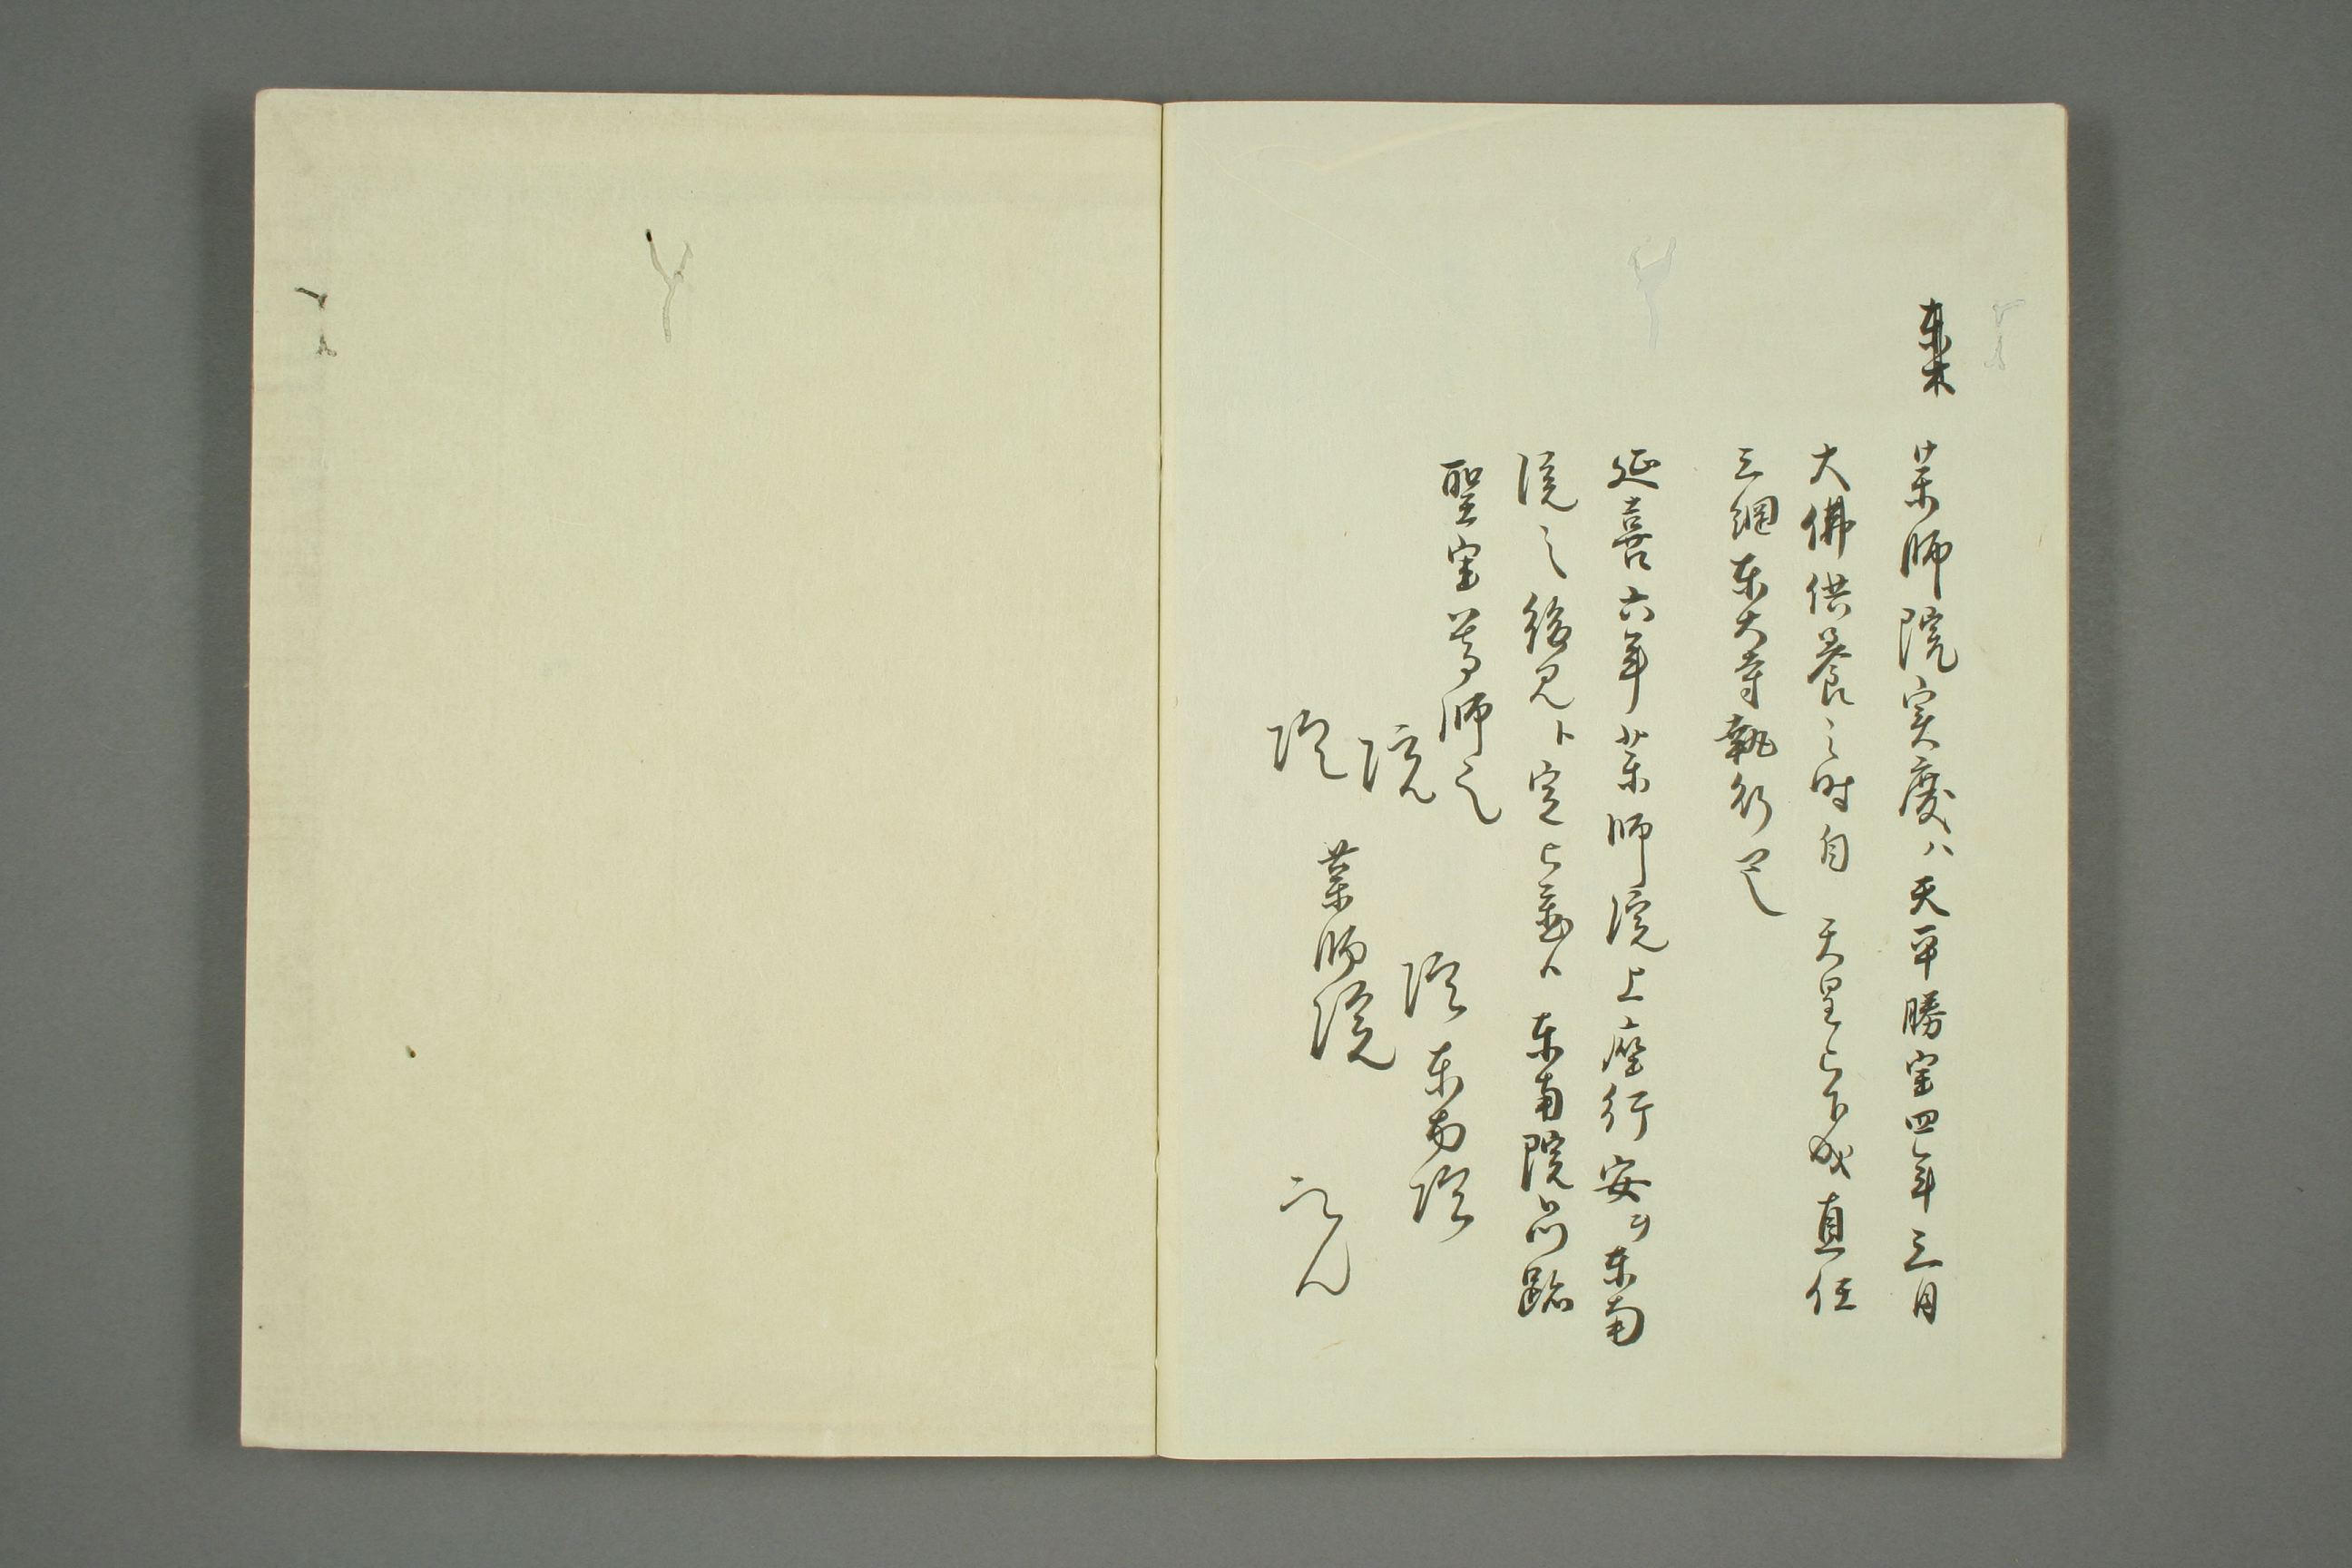 薬師院実慶ハ天平勝宝四年三月
大佛供養之時自　天皇被成直任
三綱東大寺執行已
延喜六年薬師院上座行安ヲ東南
院之後見ト定上ト東南院門跡
聖宝尊師之
院東南院
院
院
薬師院